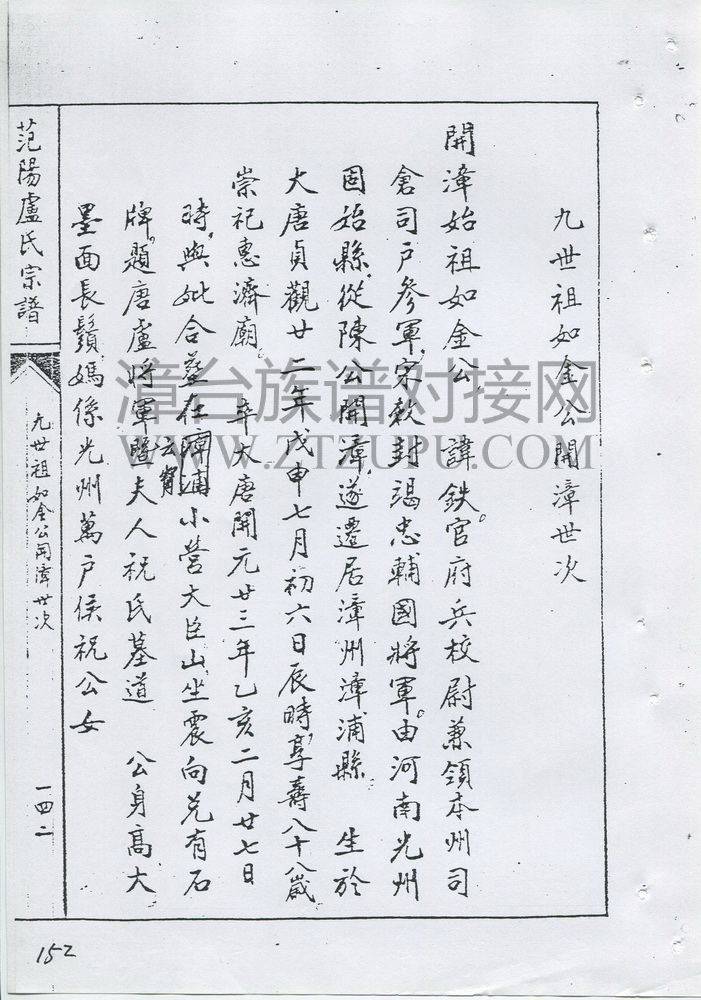 九世祖如金公開漳世次
開漳始祖如金公,諱鉄。官府兵校尉兼領本州司
倉司戶參軍,宋敕封竭忠輔國將軍。由河南光州
固始縣,從陳公開漳,遂遷居漳州漳浦縣 生於
大唐貞觀廿二年戊申七月初六日辰時,享壽八十八歲
崇祀惠濟廟。 卒大唐開元廿三年乙亥二月廿七日
時,與妣合葬在漳浦小營大臣山,坐震向兌有石
云霄
牌,題唐盧將軍暨夫人祝氏墓道 公身高大
墨面長鬚,媽係光州萬戶侯祝公女
范陽盧氏宗譜
九世祖如金公開漳世次
一四二
152
漳台族谱对接网
WWW.ZTZUPU.COM